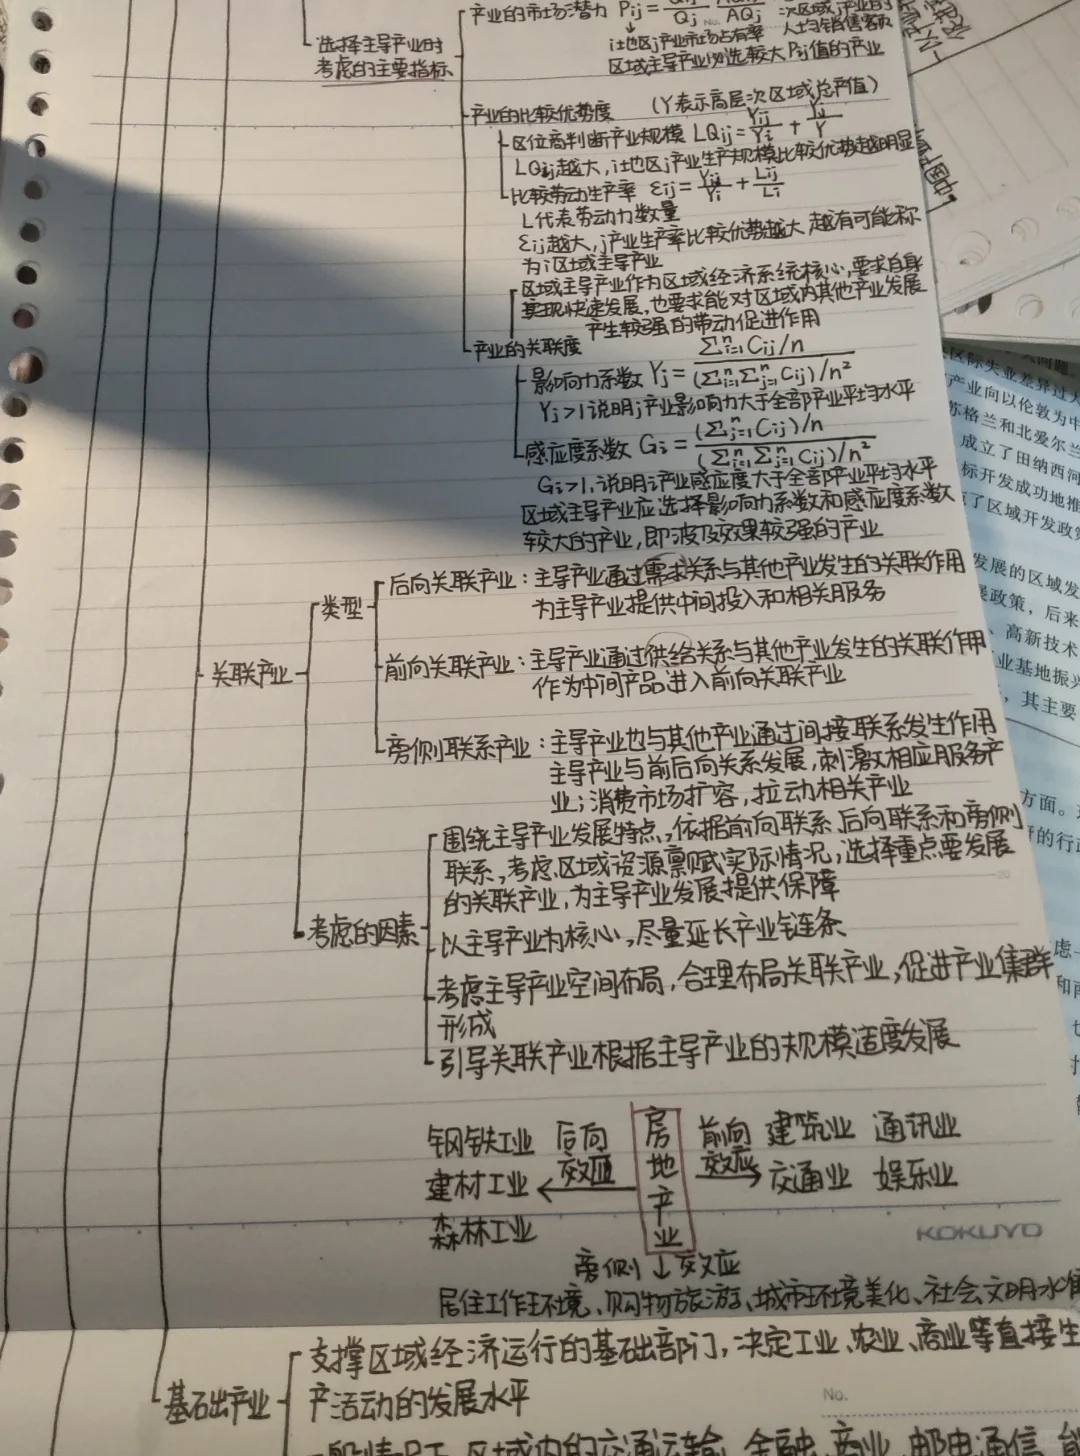 产业的市场潜力 Pij = Qij/Qj AQij/AQj 次区域j产业的
人均销售客户
i地区j产业市场占有率
选择主导产业时
考虑的主要指标
区域主导产业必选较大Pij值的产业
产业的比较优势度 (Y表示高层次区域总产值)
区位商判断产业规模 LQij = Yij/Yi ÷ Yj/Y
LQij越大,i地区j产业生产规模比较优势越明显
比较劳动生产率 εij = Yij/Yi ÷ Lij/Li
L代表劳动力数量
εij越大,j产业生产率比较优势越大,越有可能称
为i区域主导产业
区域主导产业作为区域经济系统核心,要求自身
实现快速发展,也要求能对区域内其他产业发展
产生较强的带动促进作用
产业的关联度
影响力系数 Yj = Σⁿi=1 Cij/n / (Σⁿi=1 Σⁿj=1 Cij)/n²
Yj>1说明j产业影响力大于全部产业平均水平
感应度系数 Gi = (Σⁿj=1 Cij)/n / (Σⁿi=1 Σⁿj=1 Cij)/n²
Gi>1,说明i产业感应度大于全部产业平均水平
区域主导产业应选择影响力系数和感应度系数
较大的产业,即波及效果较强的产业
关联产业
类型
后向关联产业:主导产业通过需求关系与其他产业发生的关联作用
为主导产业提供中间投入和相关服务
前向关联产业:主导产业通过供给关系与其他产业发生的关联作用
作为中间产品进入前向关联产业
旁侧联系产业:主导产业也与其他产业通过间接联系发生作用
主导产业与前后向关系发展,刺激相应服务产
业;消费市场扩容,拉动相关产业
考虑的因素
围绕主导产业发展特点,依据前向联系、后向联系和旁侧
联系,考虑区域资源禀赋实际情况,选择重点要发展
的关联产业,为主导产业发展提供保障
以主导产业为核心,尽量延长产业链条
考虑主导产业空间布局,合理布局关联产业,促进产业集群
形成
引导关联产业根据主导产业的规模适度发展
钢铁工业 后向 房地产业 前向 建筑业 通讯业
建材工业 效应 效应 交通业 娱乐业
森林工业
KOKUYO
旁侧↓效应
居住工作环境、购物旅游、城市环境美化、社会文明水准
基础产业
支撑区域经济运行的基础部门,决定工业、农业、商业等直接生
产活动的发展水平
No.
区域内的交通运输、金融、商业、邮电通信
区际失业差异过大
产业向以伦敦为中
苏格兰和北爱尔兰
成立了田纳西河
标开发成功地推
了区域开发政策
发展的区域发
政策,后来
、高新技术
业基地振兴
,其主要
方面。
的行政